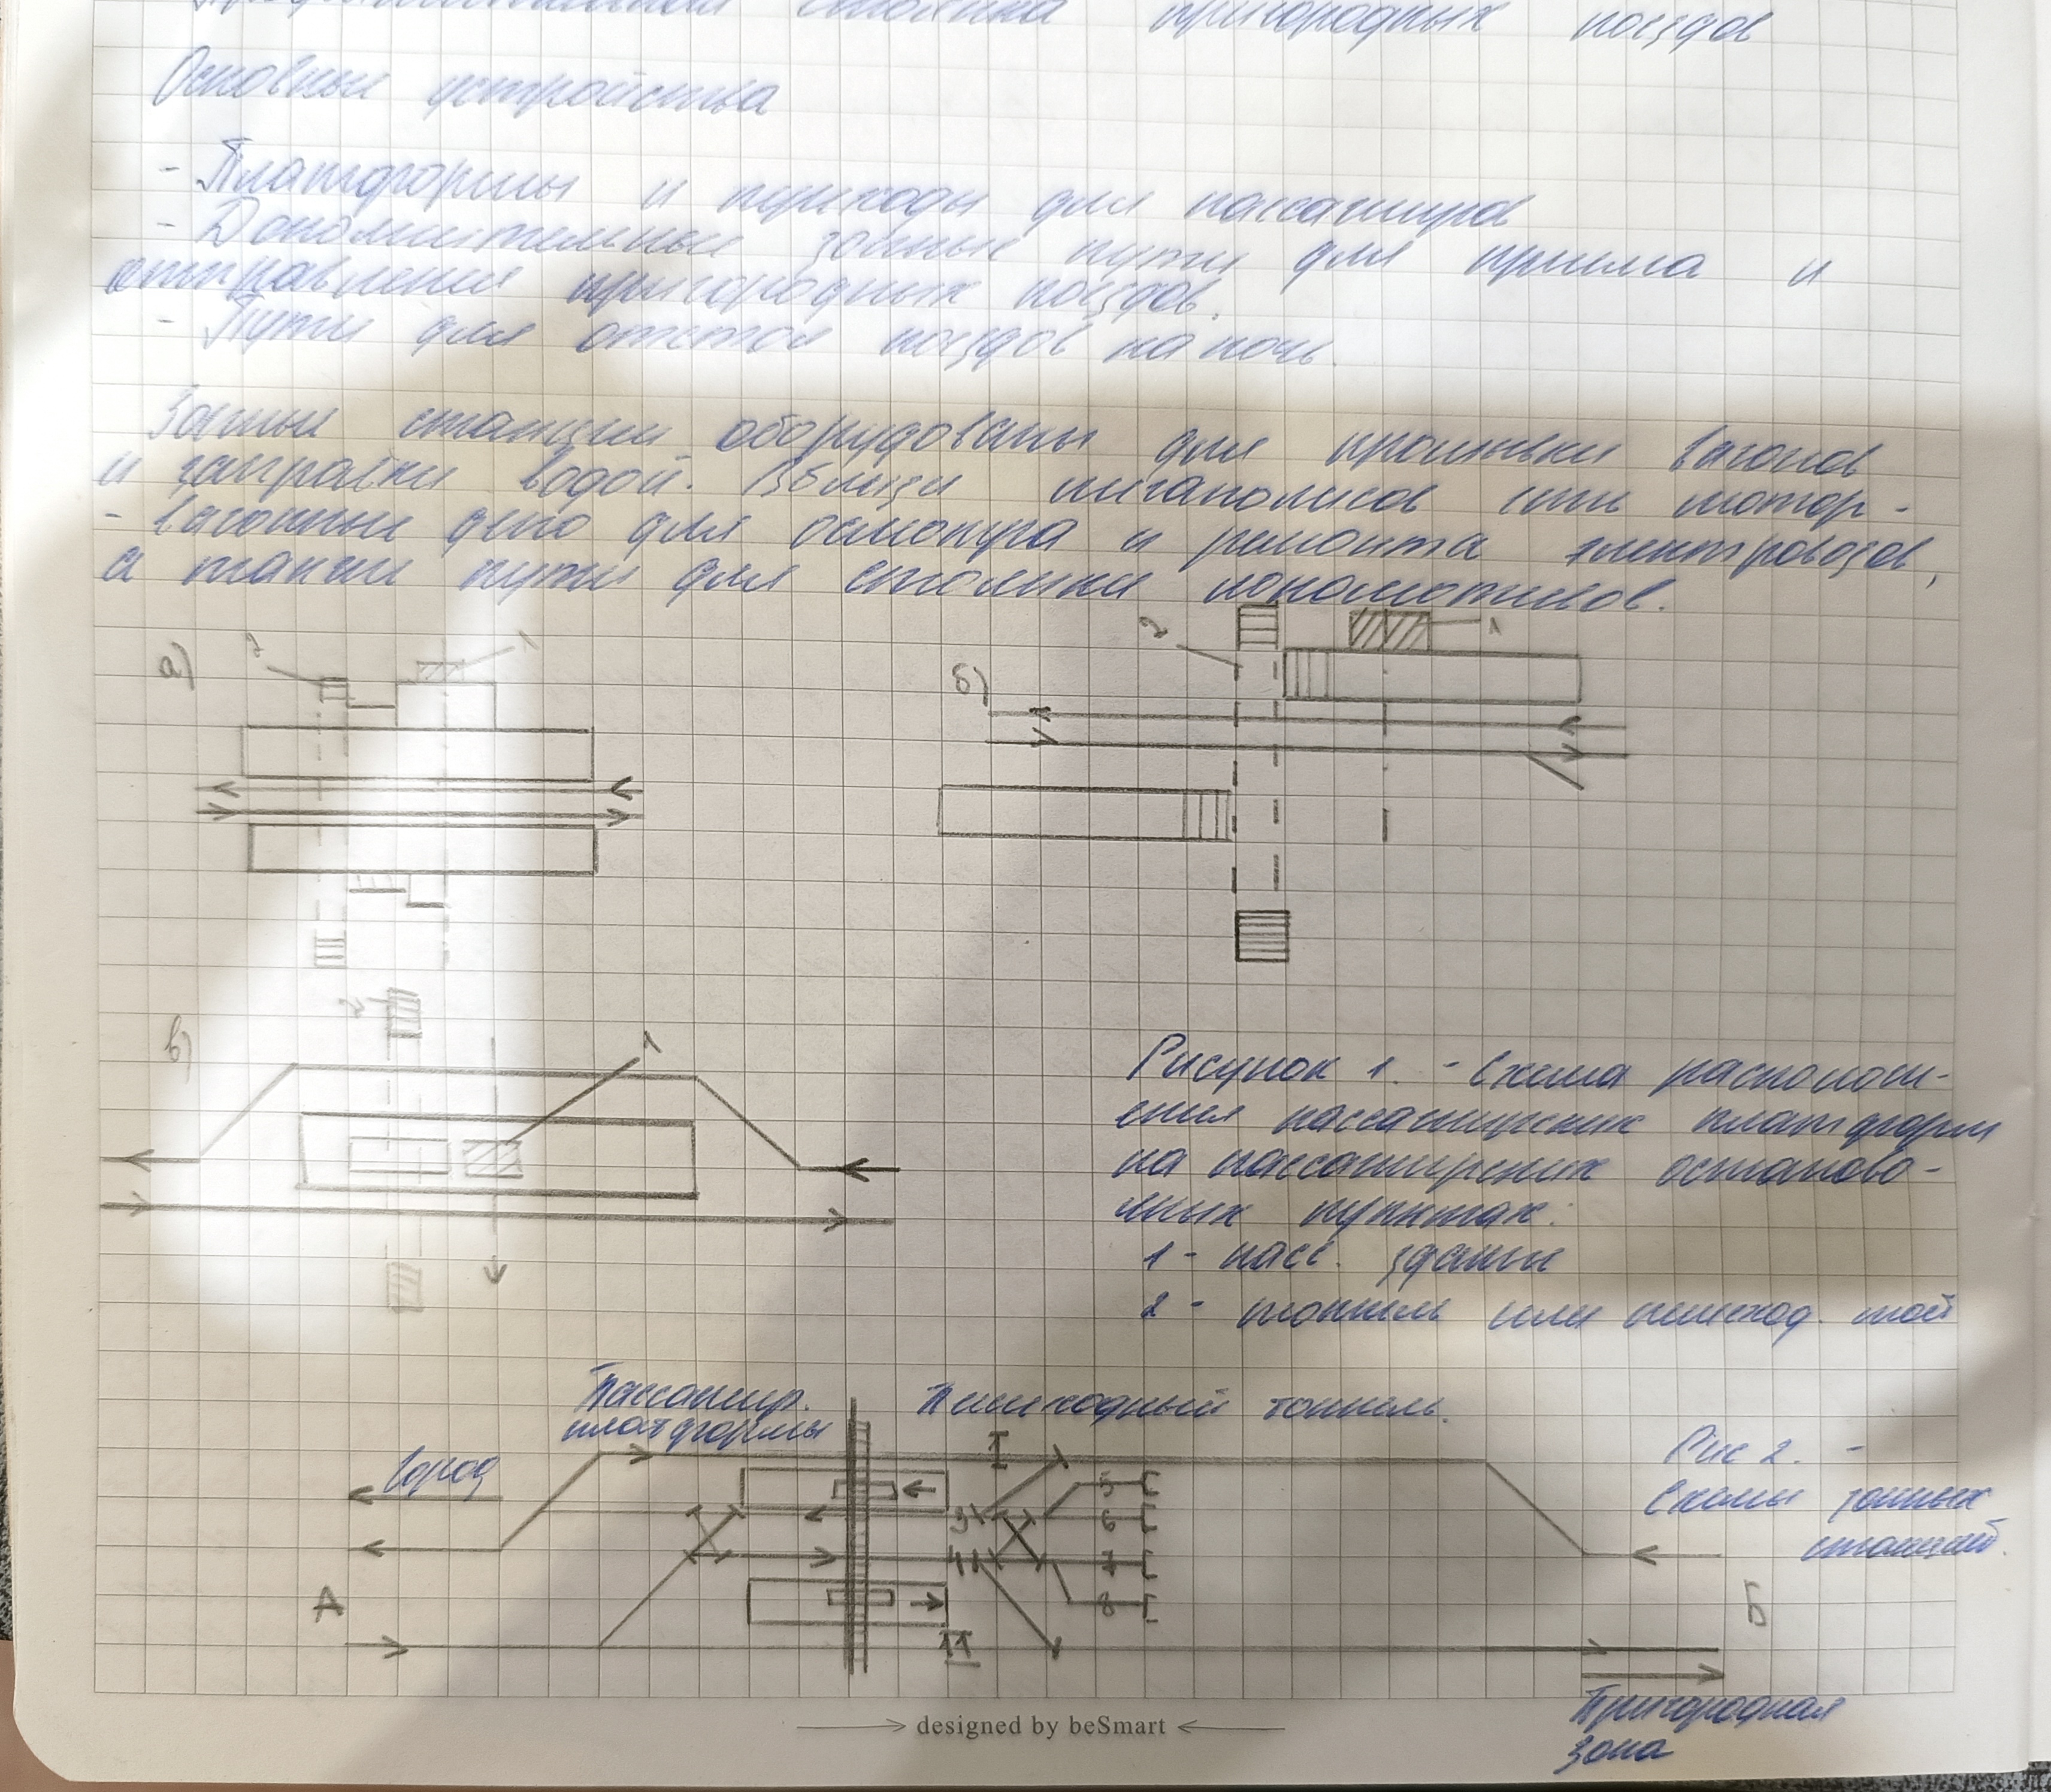 стоянка пригородных поездов
Основные устройства
- Платформы и переходы для пассажиров
- Дополнительные зонные пути для приема и
отправления пригородных поездов.
- Пути для отстоя поездов на ночь.
Зонные станции оборудованы для промывки вагонов
и заправки водой. Вблизи мегаполисов есть мотор-
- вагонные депо для осмотра и ремонта электровозов,
а также пути для стоянки локомотивов.
а) 2 1
б) 2 1
в) 2 1
Рисунок 1. - Схема располож-
ения пассажирских платформ
на пассажирских останово-
чных пунктах:
1 - пасс. здание
2 - тоннель или пешеход. мост
Пассажир. Пешеходный тоннель.
платформы
Город
I
Рис 2. -
Схемы зонных
станций.
3 5
6
4 7
8
А Б
II
Пригородная
зона
designed by beSmart